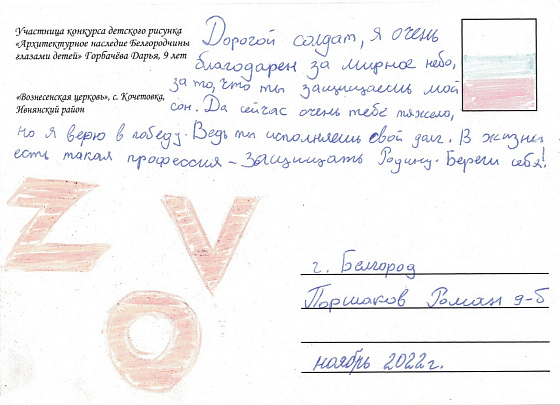 Участница конкурса детского рисунка
«Архитектурное наследие Белгородчины
глазами детей» Горбачёва Дарья, 9 лет
«Вознесенская церковь», с. Кочетовка,
Ивнянский район
Дорогой солдат, я очень
благодарен за мирное небо,
за то, что ты защищаешь мой
сон. Да сейчас очень тебе тяжело,
но я верю в победу. Ведь ты исполняешь свой долг. В жизни
есть такая профессия – защищать Родину. Береги себя!
Z V
O
г. Белгород
Поршаков Роман 9-Б
ноябрь 2022г.